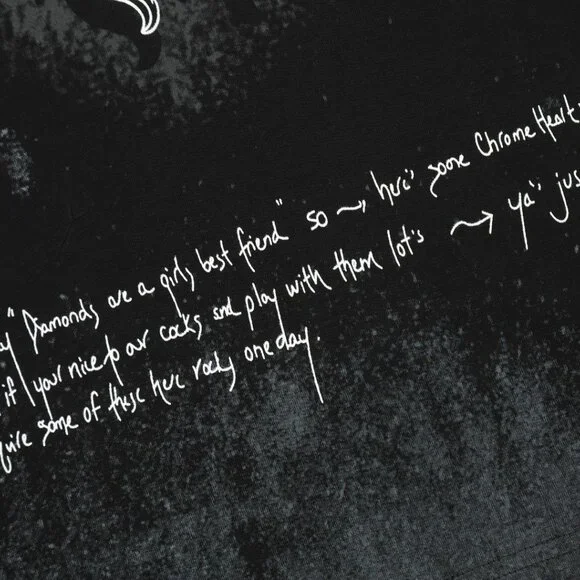 "Diamonds are a girls best friend" so → here's some Chrome Heart
if your nice to our cocks and play with them lot's → ya'' jus
some of these here rocks one day.